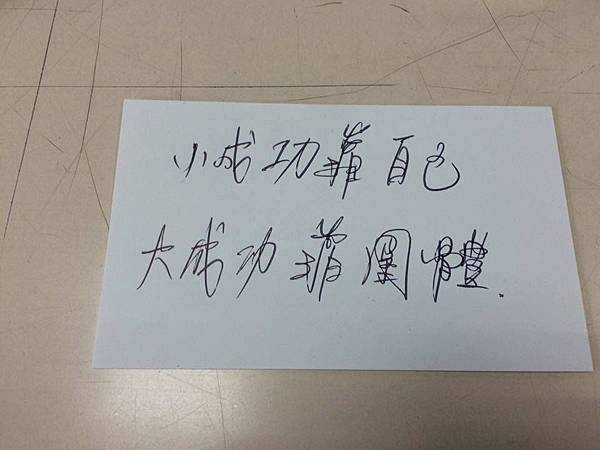 小成功靠自己
大成功靠團體.